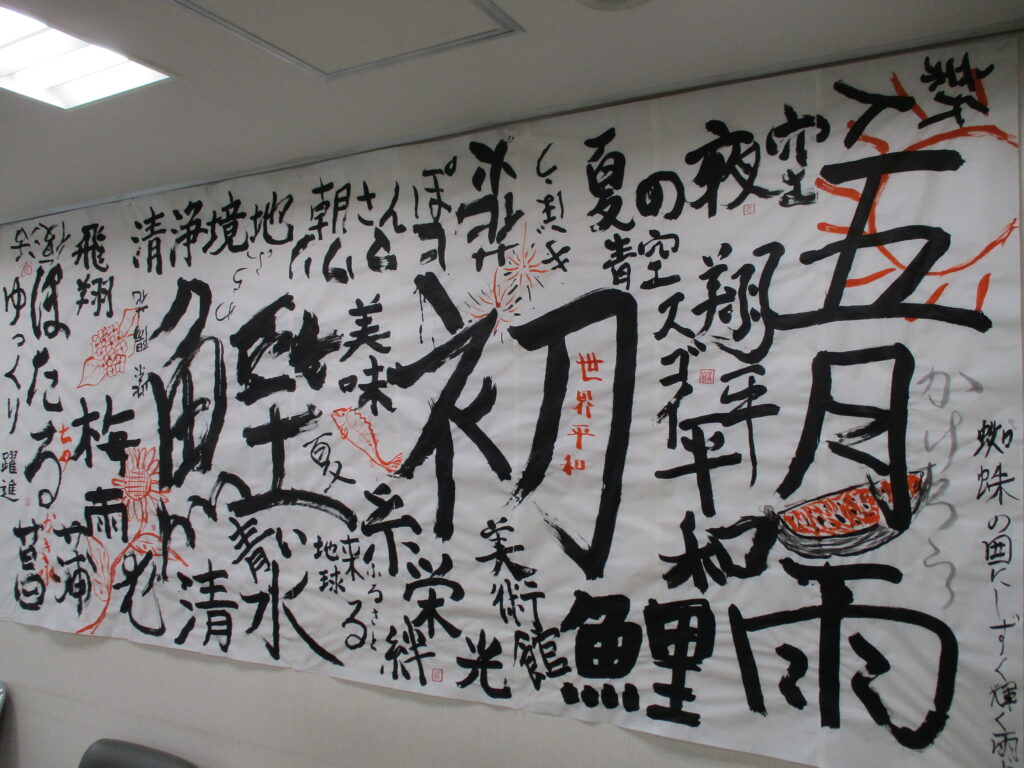 五月雨
蜘蛛の囲にしずく輝く雨
かげろう
夜空
翔平
平和
夏の
青空スゴイ
初鰹
世界平和
鯉
美術館
光
栄
絆
ふるさと
糸
美味
朝
さんぽ
清浄境地
夏来る
地球
青い水
清
飛翔
梅雨
菖蒲
ほたる
ゆっくり
躍進